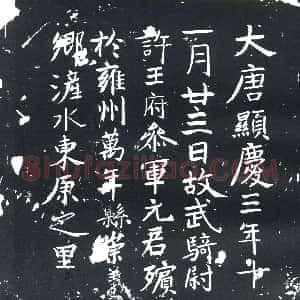 大唐顯慶三年十
一月廿三日故武騎尉
許王府叅軍元君殯
於雍州萬年縣崇義
鄉滻水東原之里